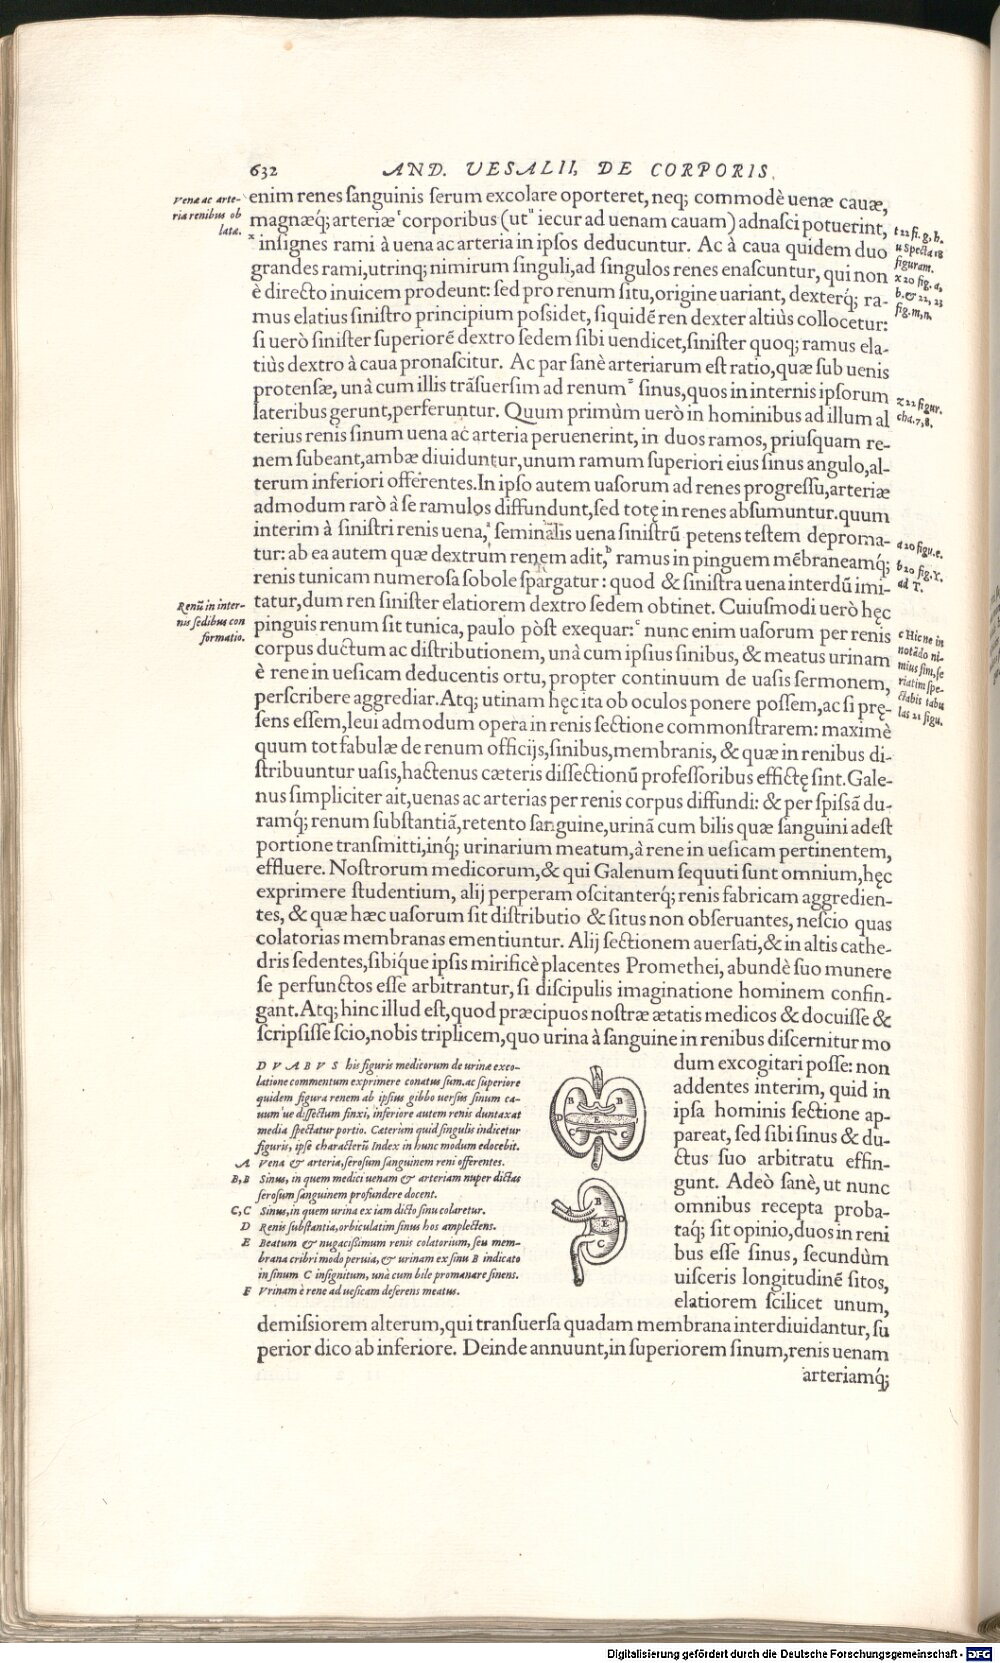 632 AND. VESALII, DE CORPORIS
Venæ ac arte-
riæ renibus ob
latæ.
enim renes sanguinis serum excolare oporteret, neq; commodè uenæ cauæ,
magnæq́; arteriæ ᵗ corporibus (ut ᵘ iecur ad uenam cauam) adnasci potuerint,
ˣ insignes rami à uena ac arteria in ipsos deducuntur. Ac à caua quidem duo
grandes rami, utrinq; nimirum singuli, ad singulos renes enascuntur, qui non
è directo inuicem prodeunt: sed pro renum situ, origine uariant, dexterq́; ra-
mus elatius sinistro principium possidet, siquidẽ ren dexter altiùs collocetur:
si uerò sinister superiorẽ dextro sedem sibi uendicet, sinister quoq; ramus ela-
tiùs dextro à caua pronascitur. Ac par sanè arteriarum est ratio, quæ sub uenis
protensæ, unà cum illis trãsuersim ad renum ᶻ sinus, quos in internis ipsorum
lateribus gerunt, perferuntur. Quum primùm uerò in hominibus ad illum al
terius renis sinum uena ac arteria peruenerint, in duos ramos, priusquam re-
nem subeant, ambæ diuiduntur, unum ramum superiori eius sinus angulo, al-
terum inferiori offerentes. In ipso autem uasorum ad renes progressu, arteriæ
admodum rarò à se ramulos diffundunt, sed totę in renes absumuntur. quum
interim à sinistri renis uena, ᵃ seminalis uena sinistrũ petens testem deproma-
tur: ab ea autem quæ dextrum renem adit, ᵇ ramus in pinguem mẽbraneamq́;
renis tunicam numerosa sobole spargatur: quod & sinistra uena interdũ imi-
tatur, dum ren sinister elatiorem dextro sedem obtinet. Cuiusmodi uerò hęc
pinguis renum sit tunica, paulo pòst exequar: ᶜ nunc enim uasorum per renis
corpus ductum ac distributionem, unà cum ipsius sinibus, & meatus urinam
è rene in uesicam deducentis ortu, propter continuum de uasis sermonem,
perscribere aggrediar. Atq; utinam hęc ita ob oculos ponere possem, ac si prę-
sens essem, leui admodum opera in renis sectione commonstrarem: maximè
quum tot fabulæ de renum officijs, sinibus, membranis, & quæ in renibus di-
stribuuntur uasis, hactenus cæteris dissectionũ professoribus effictę sint. Gale-
nus simpliciter ait, uenas ac arterias per renis corpus diffundi: & per spissã du-
ramq́; renum substantiã, retento sanguine, urinã cum bilis quæ sanguini adest
portione transmitti, inq́; urinarium meatum, à rene in uesicam pertinentem,
effluere. Nostrorum medicorum, & qui Galenum sequuti sunt omnium, hęc
exprimere studentium, alij perperam oscitanterq́; renis fabricam aggredien-
tes, & quæ hæc uasorum sit distributio & situs non obseruantes, nescio quas
colatorias membranas ementiuntur. Alij sectionem auersati, & in altis cathe-
dris sedentes, sibiq́ue ipsis mirificè placentes Promethei, abundè suo munere
se perfunctos esse arbitrantur, si discipulis imaginatione hominem confin-
gant. Atq; hinc illud est, quod præcipuos nostræ ætatis medicos & docuisse &
scripsisse scio, nobis triplicem, quo urina à sanguine in renibus discernitur mo
dum excogitari posse: non
addentes interim, quid in
ipsa hominis sectione ap-
pareat, sed sibi sinus & du-
ctus suo arbitratu effin-
gunt. Adeò sanè, ut nunc
omnibus recepta proba-
taq́; sit opinio, duos in reni
bus esse sinus, secundùm
uisceris longitudinẽ sitos,
elatiorem scilicet unum,
demissiorem alterum, qui transuersa quadam membrana interdiuidantur, su
perior dico ab inferiore. Deinde annuunt, in superiorem sinum, renis uenam
arteriamq́;
t 22 fi. g, h.
u Specta 18
figuram.
x 20 fig. d,
b. & 22, 23
fig. m, n.
z 22 figur.
cha. 7, 8.
a 20 figu. ε.
b 20 fig. Υ.
ad Τ.
Renũ in inter-
nis sedibus con
formatio.
c Hic ne in
notãdo ni-
mius sim, se
riatim spe-
ctabis tabu
las 21 figu.
DVABVS his figuris medicorum de urinæ exco-
latione commentum exprimere conatus sum. ac superiore
quidem figura renem ab ipsius gibbo uersus sinum ca-
uum'ue dissectum finxi, inferiore autem renis duntaxat
media spectatur portio. Cæterùm quid singulis indicetur
figuris, ipse characterũ Index in hunc modum edocebit.
A Vena & arteria, serosum sanguinem reni offerentes.
B,B Sinus, in quem medici uenam & arteriam nuper dictas
serosum sanguinem profundere docent.
C,C Sinus, in quem urina ex iam dicto sinu colaretur.
D Renis substantia, orbiculatim sinus hos amplectens.
E Beatum & nugacissimum renis colatorium, seu mem-
brana cribri modo peruia, & urinam ex sinu B indicato
in sinum C insignitum, unà cum bile promanare sinens.
F Vrinam è rene ad uesicam deferens meatus.
A
B B
D E
C C
F
A B
D
E
C
F
Digitalisierung gefördert durch die Deutsche Forschungsgemeinschaft - DFG